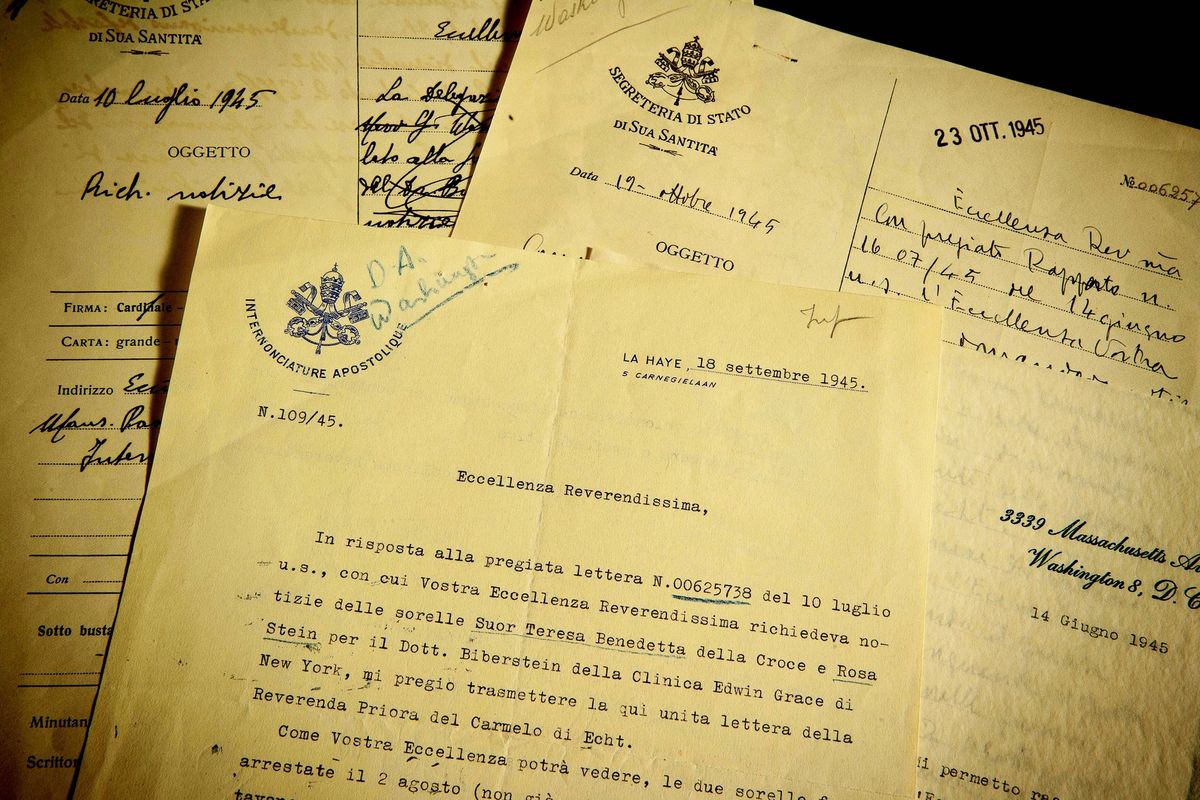 SEGRETERIA DI STATO
DI SUA SANTITÀ
Data 10 luglio 1945
OGGETTO
Rich. notizie
FIRMA: Cardinale
CARTA: grande
Indirizzo
Mons.
Inter
Con
Sotto busta
Minutan
Scrittor
La Delegazi
lato alla
notizie
Washing
SEGRETERIA DI STATO
DI SUA SANTITÀ
Data 19 - ottobre 1945
OGGETTO
23 OTT. 1945
No 006257
Eccellenza Rev ma
Con pregiato Rapporto n.
16 07/45 del 14 giugno
u.s. l'Eccellenza Vostra
INTERNONCIATURE APOSTOLIQUE
D.A.
Washington
N.109/45.
LA HAYE, 18 settembre 1945.
5 CARNEGIELAAN
Eccellenza Reverendissima,
In risposta alla pregiata lettera N.00625738 del 10 luglio
u.s., con cui Vostra Eccellenza Reverendissima richiedeva no-
tizie delle sorelle Suor Teresa Benedetta della Croce e Rosa
Stein per il Dott. Biberstein della Clinica Edwin Grace di
New York, mi pregio trasmettere la qui unita lettera della
Reverenda Priora del Carmelo di Echt.
Come Vostra Eccellenza potrà vedere, le due sorelle f
arrestate il 2 agosto (non già
3339 Massachusetts Av
Washington 8, D. C
14 Giugno 1945
mi permetto ra